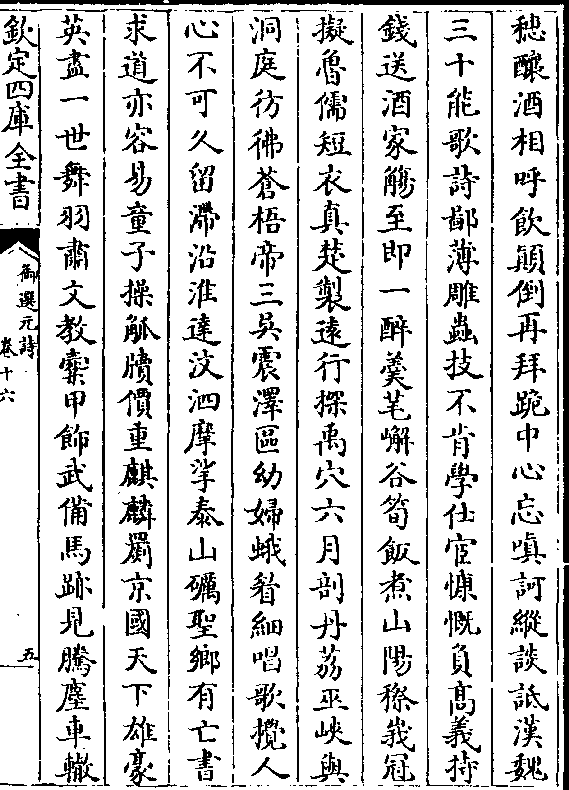 穗釀酒相呼飲顛倒再拜跪中心忘嗔訶縱談詆漢魏
三十能歌詩鄙薄雕蟲技不肯學仕宦慷慨負高義持
錢送酒家觴至即一醉羮芼嶰谷筍飯煮山陽穄峩冠
擬魯儒短衣真楚製逺行探禹穴六月剖丹荔巫峽與
洞庭彷彿蒼梧帝三吳震澤區幼婦蛾眉細唱歌攬人
心不可久留滯沿淮達汶泗摩挲泰山礪聖鄉有亡書
求道亦容易童子操觚牘價重麒麟罽京國天下雄豪
英盡一世舞羽肅文教櫜甲飾武備馬跡見騰塵車轍
欽定四庫全書
御選元詩
卷十六
五